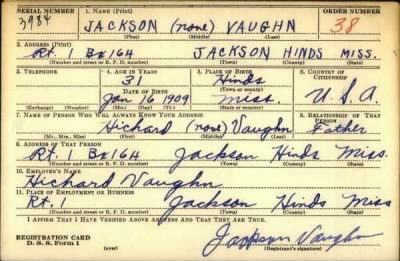 SERIAL NUMBER 1. NAME (Print) ORDER NUMBER
3984 JACKSON (none) VAUGHN 38
(First) (Middle) (Last)
2. ADDRESS (Print)
Rt. 1 Bx 164 JACKSON HINDS MISS.
(Number and street or R. F. D. number) (Town) (County) (State)
3. TELEPHONE 4. AGE IN YEARS 5. PLACE OF BIRTH 6. COUNTRY OF CITIZENSHIP
31 Hinds
DATE OF BIRTH (Town or county)
Jan 16 1909 Miss. U.S.A.
(Exchange) (Number) (Mo.) (Day) (Yr.) (State or country)
7. NAME OF PERSON WHO WILL ALWAYS KNOW YOUR ADDRESS 8. RELATIONSHIP OF THAT PERSON
Hichard (none) Vaughn Father
(Mr., Mrs., Miss) (First) (Middle) (Last)
9. ADDRESS OF THAT PERSON
Rt. 1 Bx 164 Jackson Hinds Miss.
(Number and street or R. F. D. number) (Town) (County) (State)
10. EMPLOYER'S NAME
Hichard Vaughn
11. PLACE OF EMPLOYMENT OR BUSINESS
Rt. 1 Jackson Hinds Miss
(Number and street or R. F. D. number) (Town) (County) (State)
I AFFIRM THAT I HAVE VERIFIED ABOVE ANSWERS AND THAT THEY ARE TRUE.
REGISTRATION CARD
D. S. S. Form 1 (over) Jackson Vaughn
(Registrant's signature)